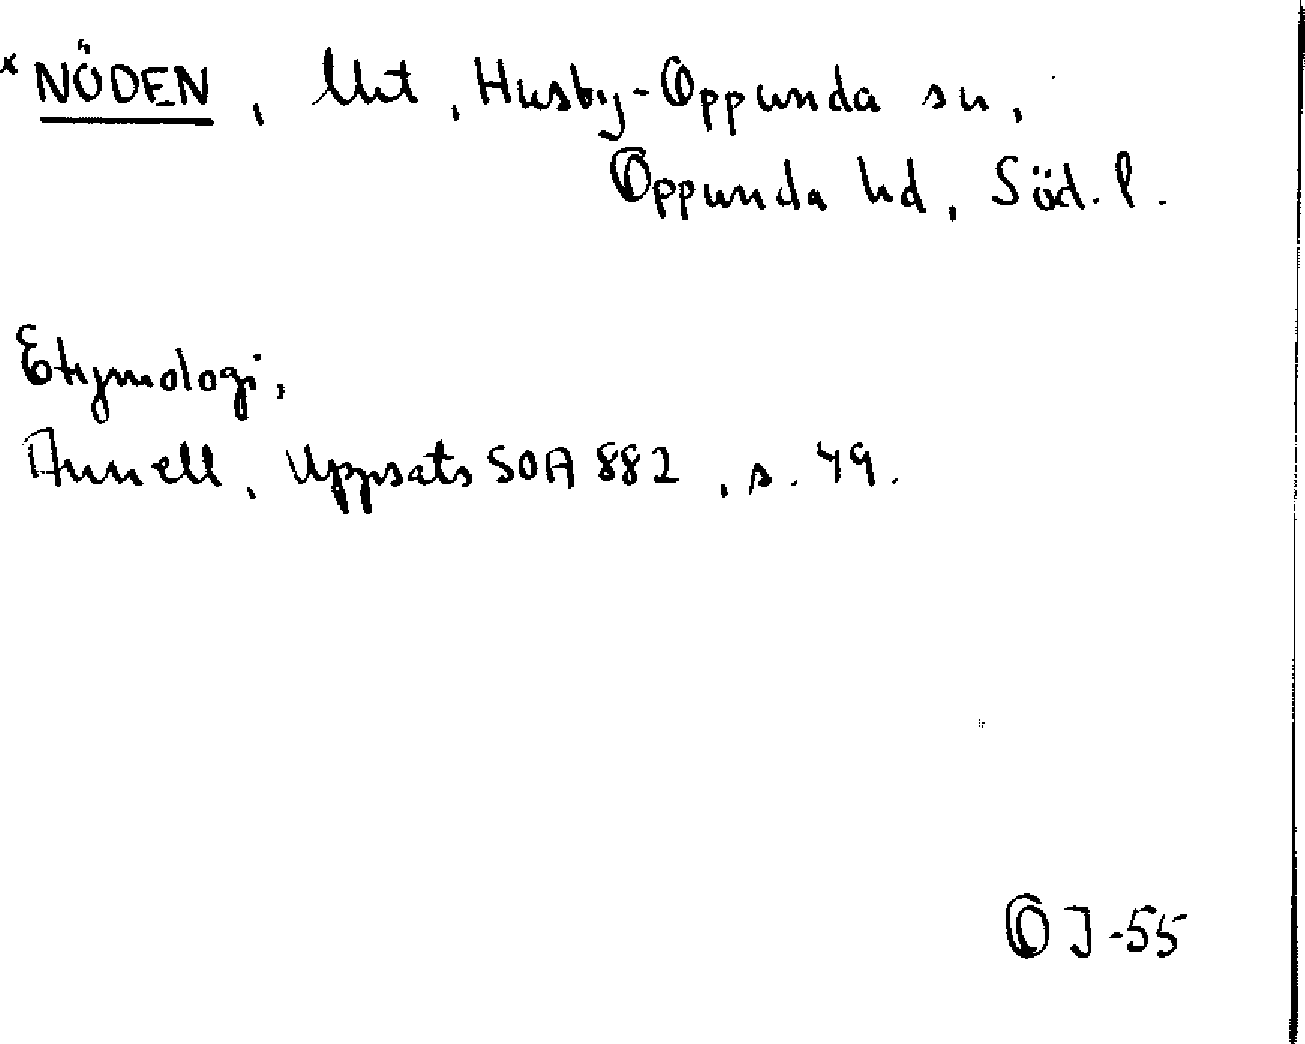 * NÖDEN, Utmt, Husby-Oppunda sn,
Oppunda hd, Söd. l.
Etymologi,
Annell, Uppsats SOA 882, s. 49.
OJ-55